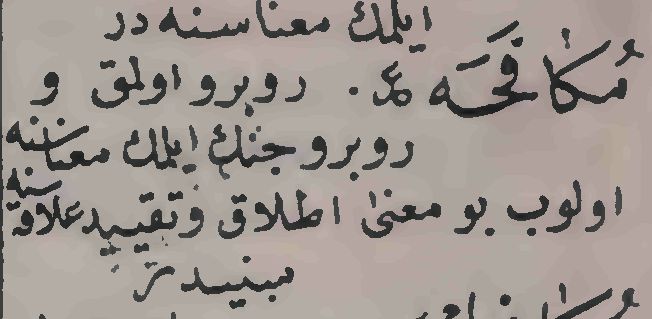 ايلمك معناسنه در
مُكَافَحَه ع. روبرو اولمق و
روبرو جنك ايلمك معناسنه
اولوب بو معنى اطلاق و تقييد علاقه سنه
مبنيدر